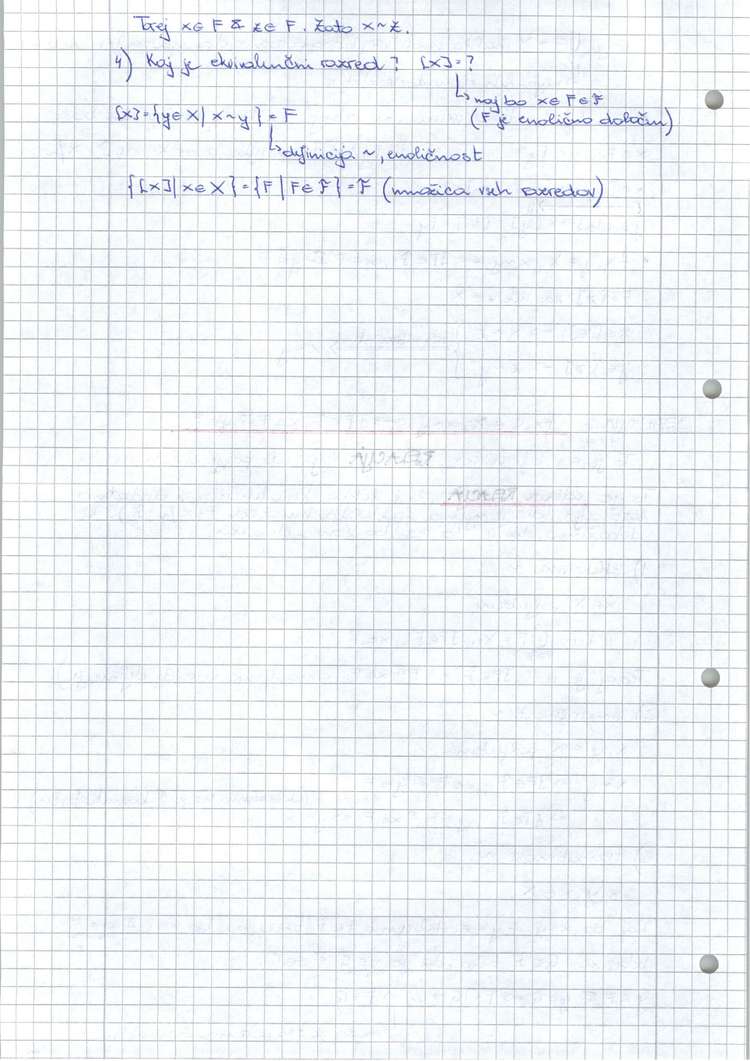 Torej x ∈ F & z ∈ F. Zato x ~ z.
4) Kaj je ekvivalenčni razred? [x] = ?
↳ naj bo x ∈ F ∈ ℱ
(F je enolično določen)
[x] = {y ∈ X | x ~ y} = F
↳ definicija ~, enoličnost
{[x] | x ∈ X} = {F | F ∈ ℱ} = ℱ (množica vseh razredov)